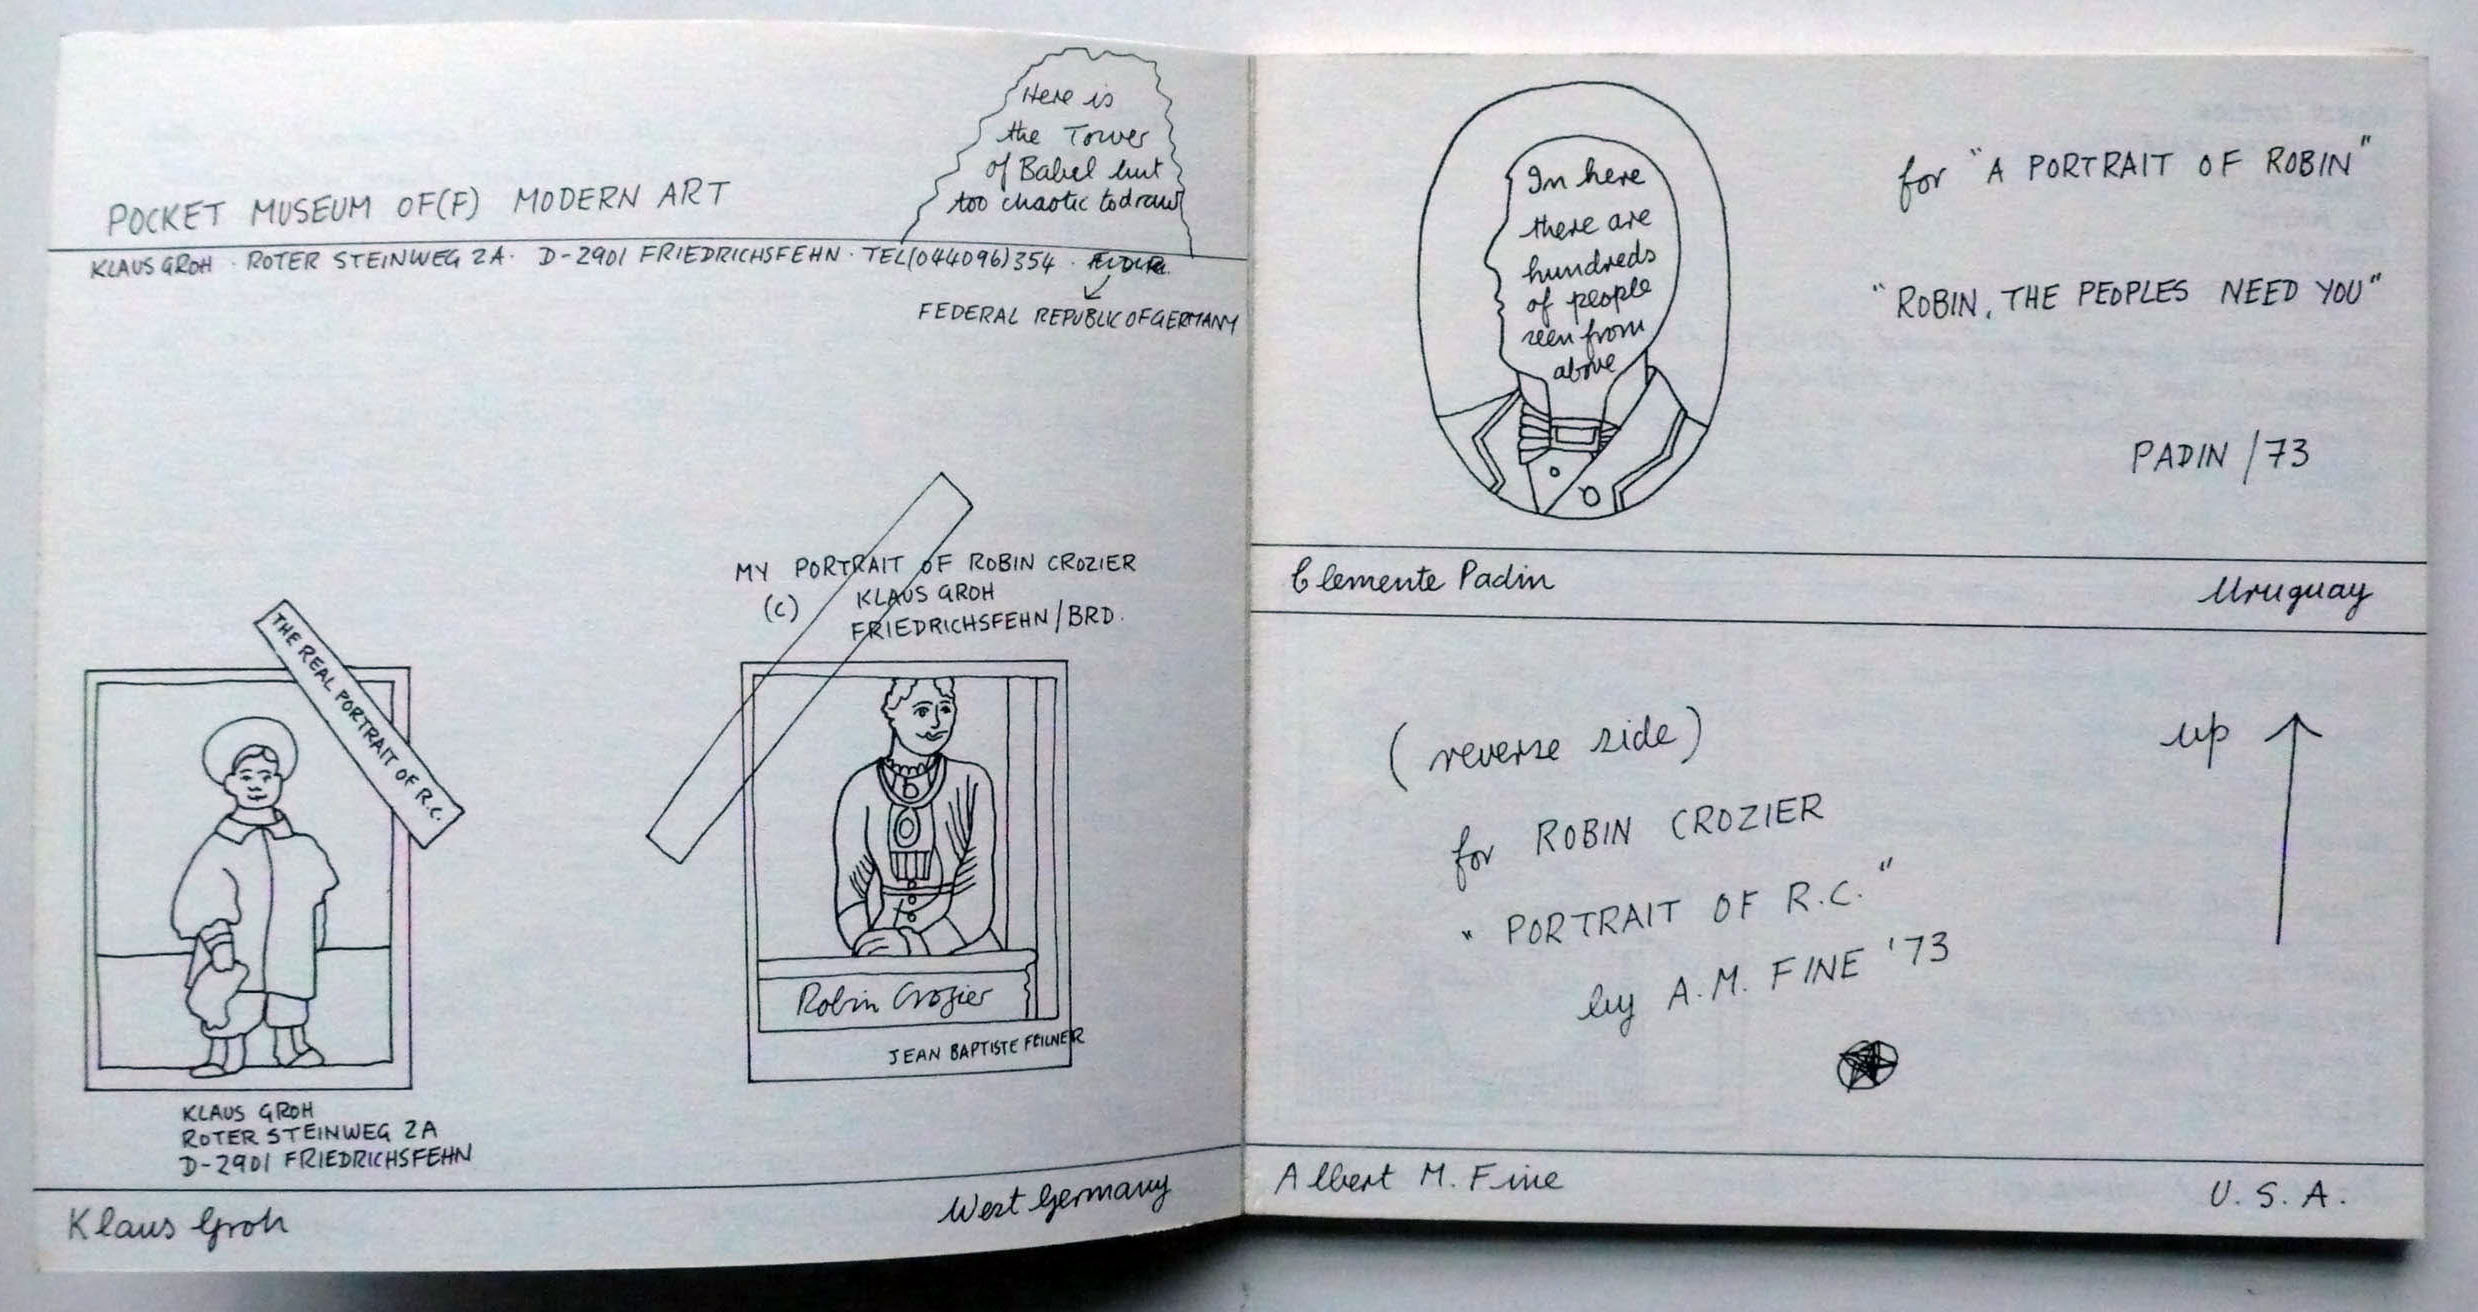 Here is
the Tower
of Babel but
too chaotic to draw
POCKET MUSEUM OF(F) MODERN ART
KLAUS GROH · ROTER STEINWEG 2A · D-2901 FRIEDRICHSFEHN · TEL(044096)354 ·
FEDERAL REPUBLIC OF GERMANY
MY PORTRAIT OF ROBIN CROZIER
(C) KLAUS GROH
FRIEDRICHSFEHN/BRD.
THE REAL PORTRAIT OF R.C.
Robin Crozier
JEAN BAPTISTE FEILNER
KLAUS GROH
ROTER STEINWEG 2A
D-2901 FRIEDRICHSFEHN
Klaus Groh West Germany
In here
there are
hundreds
of people
seen from
above
for "A PORTRAIT OF ROBIN"
"ROBIN, THE PEOPLES NEED YOU"
PADIN /73
Clemente Padin Uruguay
(reverse side)
up
for ROBIN CROZIER
"PORTRAIT OF R.C."
by A.M. FINE '73
Albert M. Fine U.S.A.